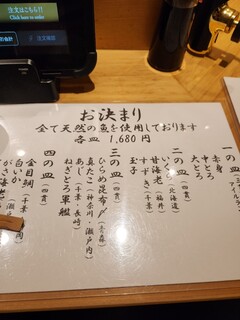 注文はこちら!!
Click here to order
お決まり
全て天然の魚を使用しております
各皿 1,680円
一の皿
赤身
中とろ
大とろ
二の皿(四貫)
いくら(北海道)
甘海老(福井)
すずき(千葉)
玉子
三の皿(四貫)
ひらめ昆布〆(青森)
真たこ(神奈川・瀬戸内)
あじ(千葉・長崎)
ねぎとろ軍艦
四の皿(四貫)
金目鯛(千葉)
白いか